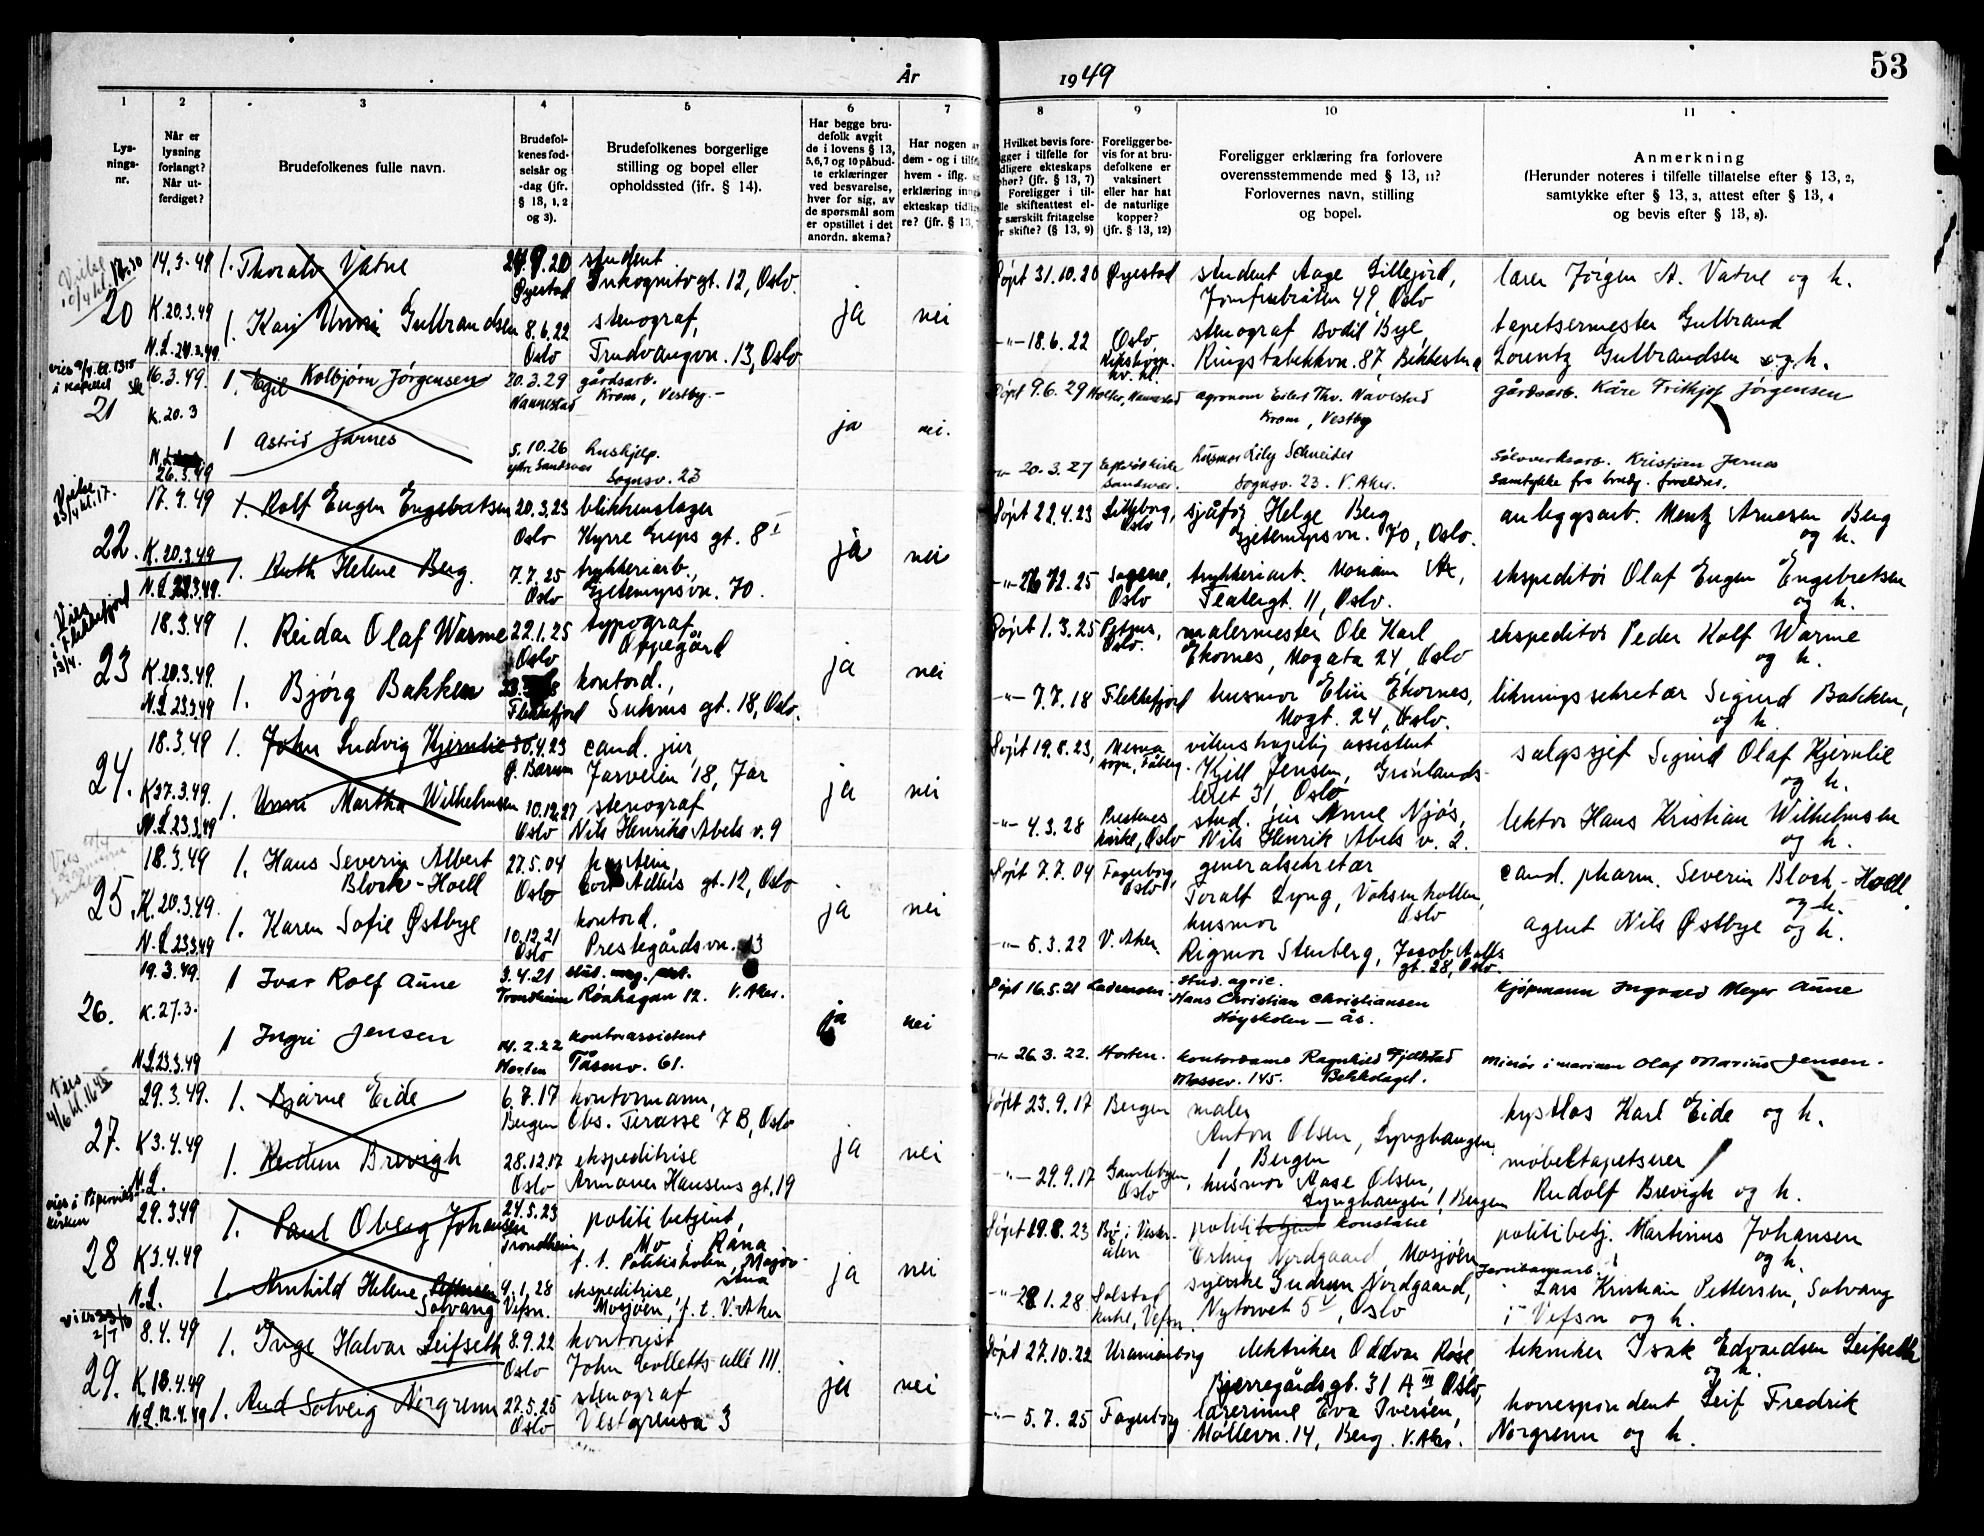 53
År 1949
1
2
3
4
5
6
7
8
9
10
11
Lys-
nings-
nr.
Når er
lysning
forlangt?
Når ut-
ferdiget?
Brudefolkenes fulle navn.
Brudefol-
kenes fød-
selsår og
-dag (jfr.
§ 13, 1, 2
og 3).
Brudefolkenes borgerlige
stilling og bopel eller
opholdssted (ifr. § 14).
Har begge bru-
defolk avgit
de i lovens § 13,
5,6,7 og 10 påbud-
te erklæringer
ved besvarelse,
hver for sig, av
de spørsmål som
er opstillet i det
anordn. skema?
Har nogen a
dem - og i tilf
hvem - iflg. s
erklæring inng
ekteskap tidli
re? (jfr. § 13,
Hvilket bevis fore-
ligger i tilfelle for
Foreligger i til-
lle skifteattest el-
r særskilt fritagelse
r skifte? (§ 13, 9)
Foreligger be-
vis for at bru-
defolkene er
vaksinert
eller har hat
de naturlige
kopper?
(jfr. § 13, 12)
Foreligger erklæring fra forlovere
overensstemmende med § 13, 11?
Forlovernes navn, stilling
og bopel.
Anmerkning
(Herunder noteres i tilfelle tillatelse efter § 13, 2,
samtykke efter § 13, 3, attest efter § 13, 4
og bevis efter § 13, 8).
20
14.3.49
K.20.3.49
1. Thoralv Vatne
Øyestad
student
Inkognitogt. 12, Oslo.
1. Kari Unni Gulbrandsen
8.6.22
Oslo
stenograf,
Trudvangvn. 13, Oslo
ja
nei
Døpt 31.10.20
Øyestad
student Aage Lillejord,
Jomfrubråten 49, Oslo
lærer Jørgen A. Vatne og h.
-"- 18.6.22
Oslo
stenograf Bodil Bye,
Ringstabekkvn. 87, Bekkestua
tapetsermester Gulbrand
Lorentz Gulbrandsen og h.
21
i kapellet
16.3.49.
K.20.3
26.3.49
1. Egil Kolbjørn Jørgensen
20.3.29
Nannestad
gårdsarb.
Krom, Vestby.-
1 Astrid Jarnes
5.10.26
hushjelp.
Sognsv. 23
ja
nei.
Døpt 9.6.29
Holter, Nannestad
agronom Eilert Thv. Navestad
Krom, Vestby
gårdsarb. Kåre Frithjof Jørgensen
-"- 20.3.27
husmor Lily Schneider
Sognsv. 23. V. Aker.
Sølvverksarb. Kristian Jarnes
Samtykke fra brudg. foreldre.
22.
Vielse
23/4 kl. 17.
17.3.49
K.20.3.49
1. Rolf Eugen Engebretsen
20.3.23
Oslo
blikkenslager
Kyrre Greps gt. 8 I
1. Ruth Helene Berg.
7.7.25
Oslo
trykkeriarb.,
Gjetemyrsvn. 70.
ja
nei
Døpt 22.4.23
Lilleborg,
Oslo
sjåfør Helge Berg
Gjetemyrsvn. 70, Oslo.
anleggsarb. Mentz Arnesen Berg
og h.
Sagene,
Oslo
trykkeriarb. Moriam Ax,
Teatergt. 11, Oslo.
ekspeditør Olaf Eugen Engebretsen
og h.
23
Vies
i Flekkefjord
13/4.
18.3.49
K.20.3.49.
N.L.23.3.49
1. Reidar Olaf Warme
22.1.25
Oslo
typograf
Oppegård
1. Bjørg Bakken
Flekkefjord
kontord.,
Suhms gt. 18, Oslo.
ja
nei
Døpt 1.3.25
Petrus,
Oslo.
malermester Ole Karl
Ekornes, Mogata 24, Oslo
ekspeditør Peder Rolf Warme
og h.
-"- 7.7.18
Flekkefjord
husmor Elin Ekornes,
Mogt. 24, Oslo.
likningssekretær Sigurd Bakken,
og h.
24.
18.3.49
K27.3.49.
N.L.23.3.49
1. John Ludvig Kjernlie
30.4.23
Ø. Bærum
cand. jur,
Jarveien 18, Jar
1. Unni Martha Wilhelmsen
10.12.27
Oslo
stenograf
Nils Henriks Abels v. 9
ja
nei
Døpt 19.8.23,
Mesna
sogn, Fåberg.
vitenskapelig assistent
Kjell Jensen, Grønlands-
leiret 31 Oslo
salgssjef Sigurd Olaf Kjernlie
og h.
-"- 4.3.28
Prestenes
kirke, Oslo
stud. jur Anne Njøs,
Nils Henrik Abels v. 2.
lektor Hans Kristian Wilhelmsen
og h.
25.
18.3.49
K.20.3.49.
N.L.23.3.49
1. Hans Severin Albert
Bloch-Hoell
27.5.04
Oslo
Cort Adlers gt. 12, Oslo
1. Karen Sofie Østbye
10.12.21
Oslo
kontord.
Prestegårdsvn. 13
ja
nei
Døpt 7.7.04
Fagerborg,
Oslo
generalsekretær
Toralf Lyng, Voksenkollen,
Oslo
cand. pharm. Severin Bloch-Hoell
og h.
-"- 5.3.22
V. Aker.
husmor
Rigmor Stenberg, Jacob Aalls
gt. 28, Oslo.
agent Nils Østbye og h.
26.
19.3.49.
K.27.3.
N.L.23.3.49
1 Ivar Rolf Aune
3.4.21
Trondheim
stud. mag. art.
Rønhagan 12. V. Aker.
1 Ingri Jensen
14.2.22
Horten
kontorassistent
Tåsenv. 61.
ja
nei
Døpt 16.5.21
Lademoen.
stud. agric.
Hans Christian Christiansen
Høyskolen - Ås.
kjøpmann Ingvald Meyer Aune
-"- 26.3.22.
Horten.
kontordame Ragnhild Fjeldstad
Mossev. 145. Bekkelaget.
minør i marinen Olaf Marius Jensen.
27.
Vies
4/6 kl. 16.45
29.3.49.
K3.4.49
N.L.
1. Bjarne Eide
6.7.17
Bergen
kontormann,
Obs. Terasse 7 B, Oslo
1. Reidun Brevigh
28.12.17
Oslo
ekspeditrise
Armauer Hansens gt. 19
ja
nei
Døpt 23.9.17
Bergen
maler
Anton Olsen, Lynghaugen
1, Bergen
kystlos Karl Eide og h.
-"- 29.9.17
Gamlebyen,
Oslo
husmor Aase Olsen,
Lynghaugen 1, Bergen
møbeltapetserer
Rudolf Brevigh og h.
28
vies i Pipervikens
kirken
29.3.49
K3.4.49
N.L.
1. Paul Oberg Johansen
24.5.23
Trondheim
politibetjent,
Mo i Rana
f. t. Politiskolen, Major-
stua
1. Arnhild Helene Pettersen
Solvang
9.1.28
Vefsn.
ekspeditrise,
Mosjøen, f. t. V. Aker
ja
nei
Døpt 19.8.23
Bø i Vester-
ålen
politibetjent konstabel
Erling Nordgaard, Mosjøen
politibetj. Martinus Johansen
og h.
1.28
Dolstad
kirke, Vefsn.
syerske Gudrun Nordgaard,
Nytorvet 5, Oslo
Jernbanearb.
Lars Kristian Pettersen, Solvang
i Vefsn og h.
29.
8.4.49
K 18.4.49
N.L.12.4.49
1. Inge Halvar Leifseth
8.9.22
Oslo
kontorist
John Colletts allé 111.
1. Aud Solveig Norgrenn
22.5.25
Oslo
stenograf
Vestgrensa 3
ja
nei
Døpt 27.10.22
Uranienborg
elektriker Oddvar Røse
Bjerregårds gt. 31 A III Oslo,
tekniker Isak Edvardsen Leifseth
og h.
-"- 5.7.25
Fagerborg
lærerinne Eva Iversen,
Møllevn. 14, Berg. V. Aker.
korrespondent Leif Fredrik
Norgrenn og h.